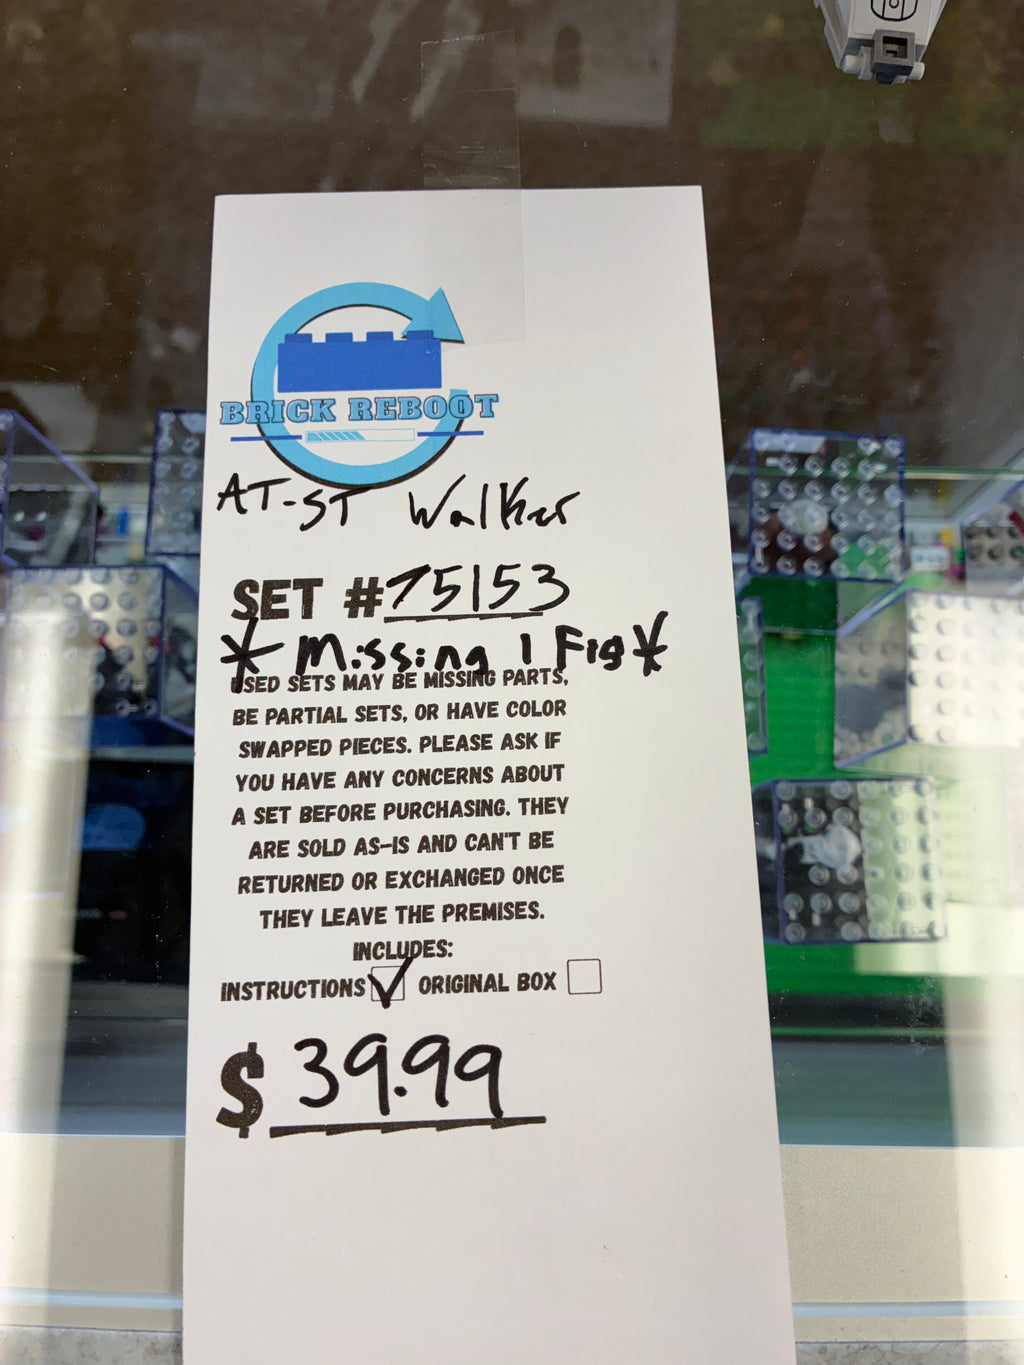 BRICK REBOOT
AT-ST Walker
SET #75153
* Missing 1 Fig *
USED SETS MAY BE MISSING PARTS,
BE PARTIAL SETS, OR HAVE COLOR
SWAPPED PIECES. PLEASE ASK IF
YOU HAVE ANY CONCERNS ABOUT
A SET BEFORE PURCHASING. THEY
ARE SOLD AS-IS AND CAN'T BE
RETURNED OR EXCHANGED ONCE
THEY LEAVE THE PREMISES.
INCLUDES:
INSTRUCTIONS ORIGINAL BOX
$ 39.99